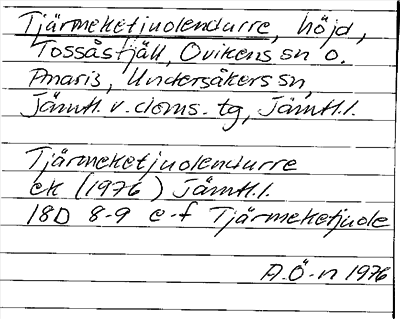 Tjärmeketjuolendurre, höjd,
Tossåsfjäll, Ovikens sn o.
Anaris, Undersåkers sn,
Jämtl. v. doms. tg, Jämtl. l.
Tjärmeketjuolendurre
ek (1976) Jämtl. l.
18D 8-9 e-f Tjärmeketjuole
A.Ö-n 1976